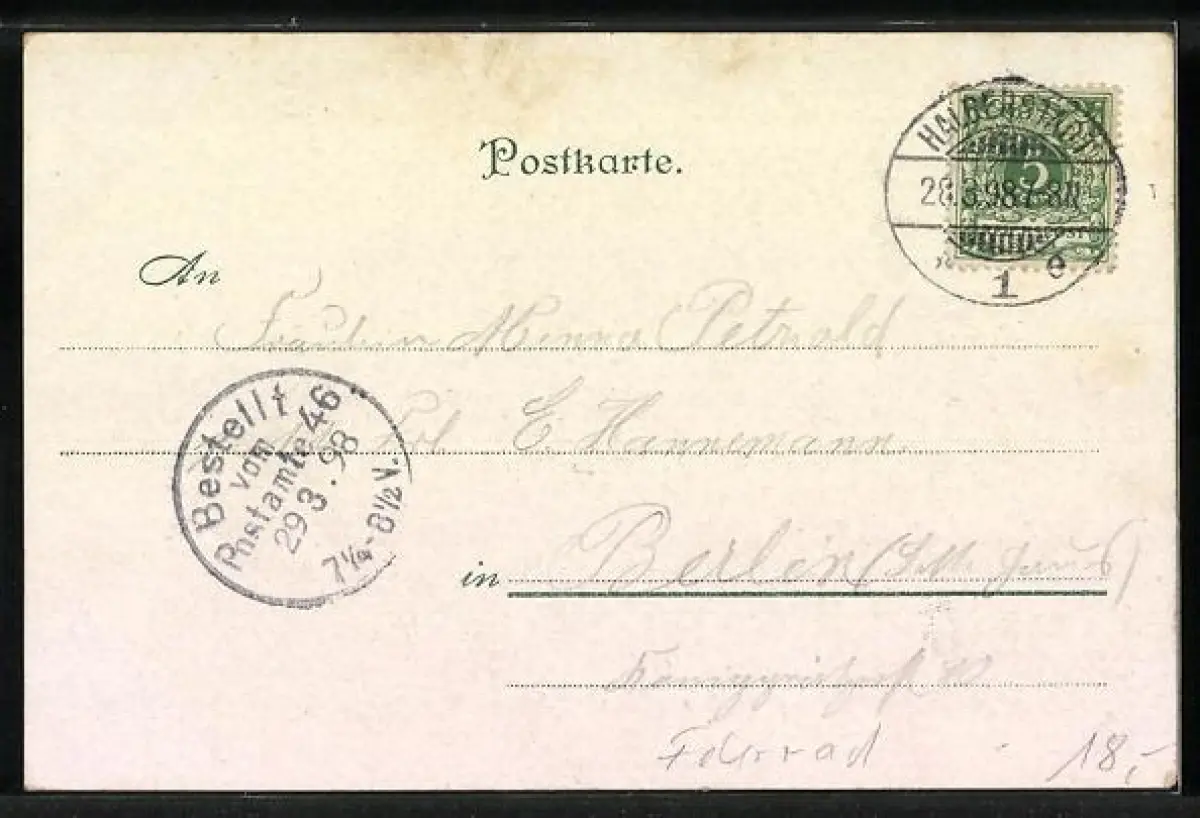 Postkarte.
HALBERSTADT
28.3.98.7-8N
1 e
5
An
Fräulein Minna Petzold
E. Hannemann
Bestellt
vom
Postamte 46
29 3. 98
7 1/4 - 8 1/2 V.
in Berlin
Fahrrad
18,-